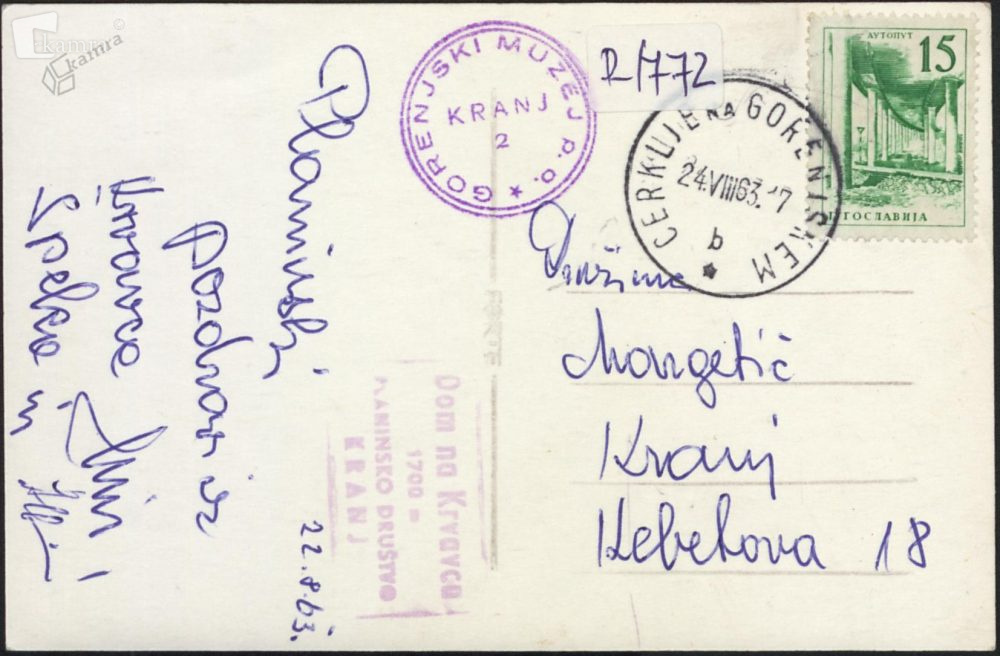 kamra
kamra
GORENJSKI MUZEJ P. O.
KRANJ
2
R/772
АУТОПУТ
15
ЈУГОСЛАВИЈА
CERKLJE NA GORENJSKEM
24.VIII63.-17
b
Planinski
pozdrav iz
Krvavca
Špelca in
22.8.63.
Dom na Krvavcu
1700 m
PLANINSKO DRUŠTVO
KRANJ
Družina
Margetič
Kranj
Kebetova 18